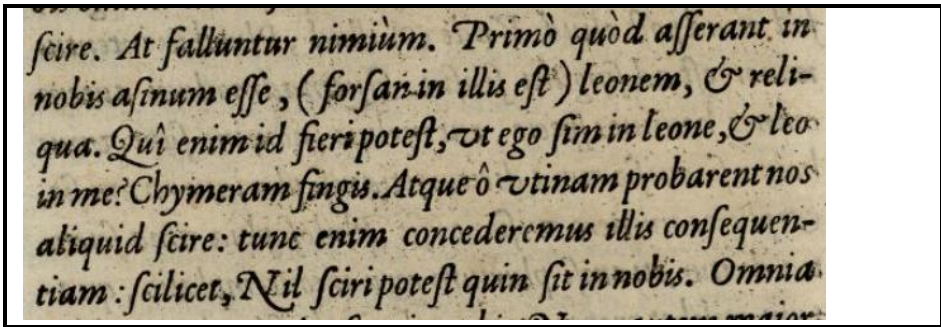 ſcire. At falluntur nimiùm. Primò quòd aſſerant in
nobis aſinum eſſe, (forſan in illis eſt) leonem, & reli-
qua. Quî enim id fieri poteſt, vt ego ſim in leone, & leo
in me? Chymeram fingis. Atque ô vtinam probarent nos
aliquid ſcire: tunc enim concederemus illis conſequen-
tiam: ſcilicet, Nil ſciri poteſt quin ſit in nobis. Omnia